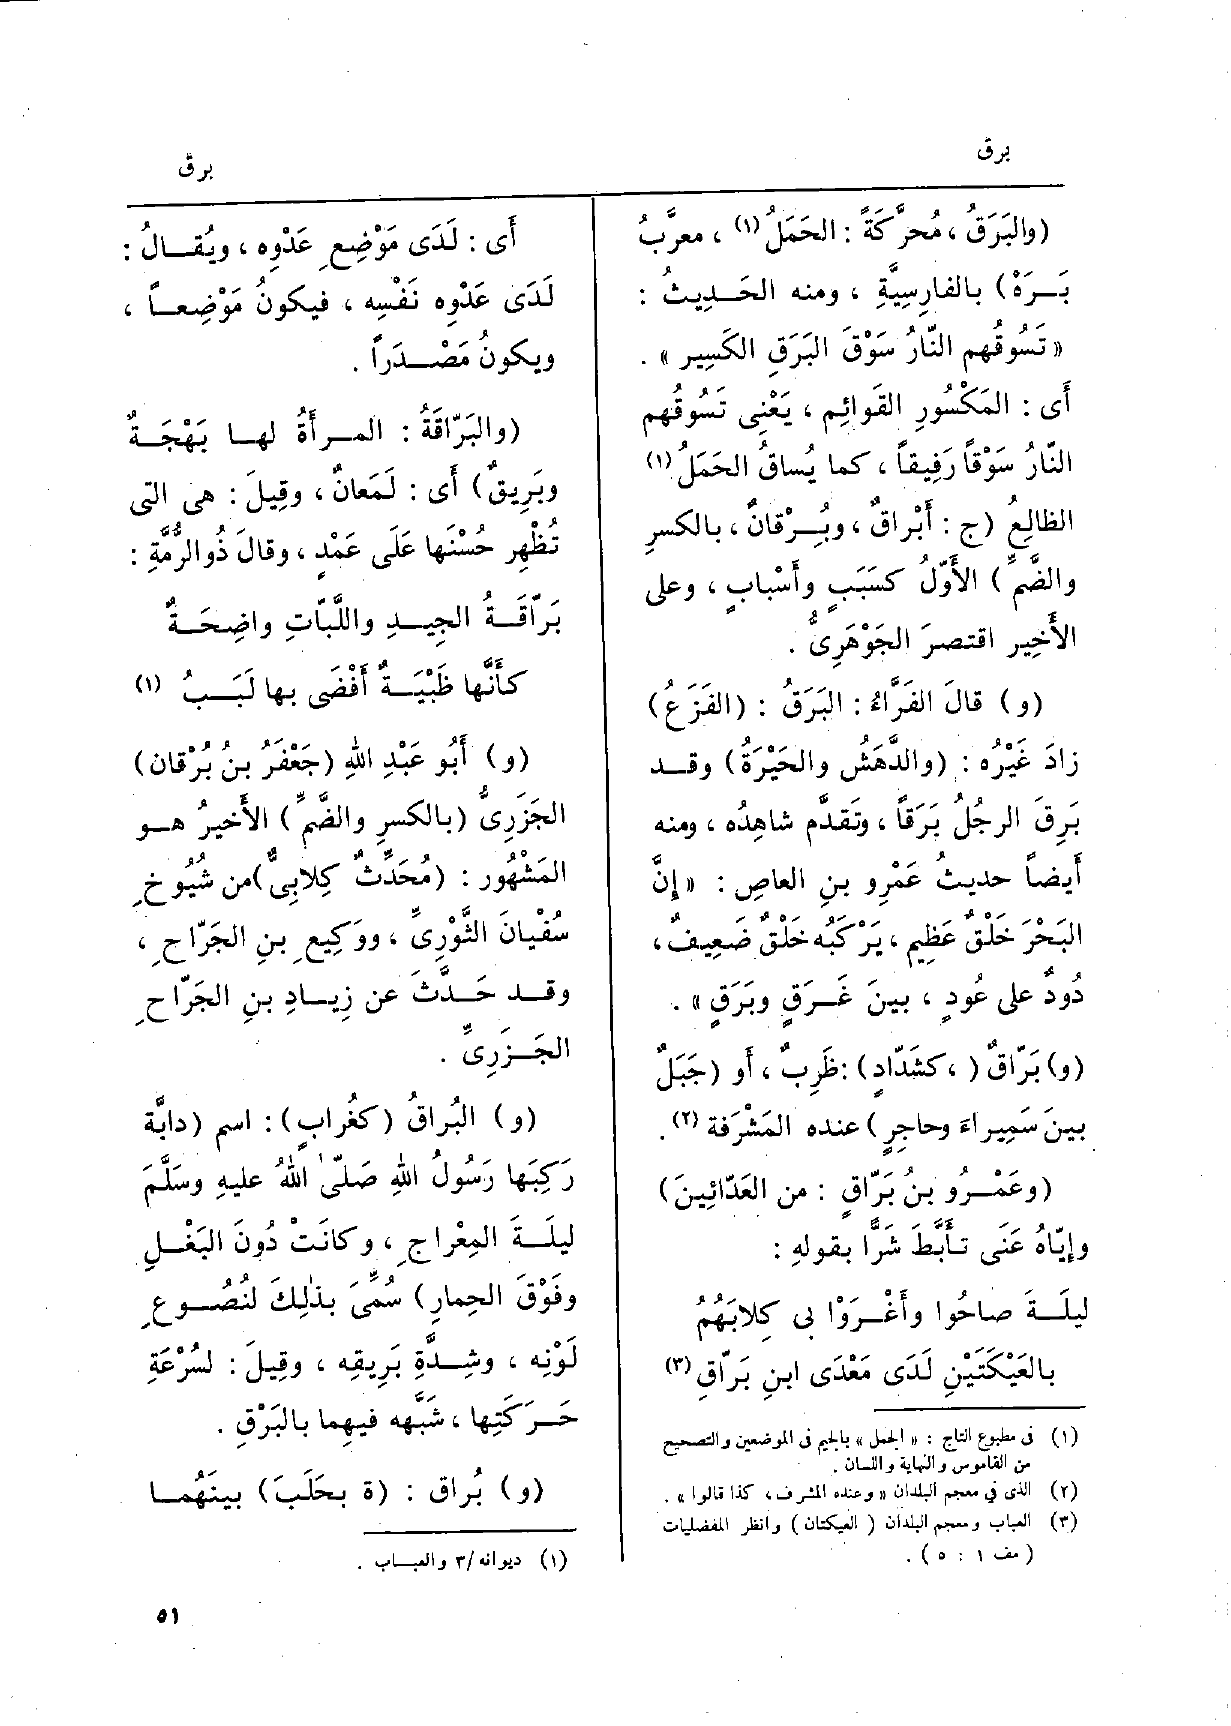 برق
(والبَرَقُ ، مُحرَّكَةً : الحَمَلُ (١) ، معرَّبُ
بَـرَهْ) بالفارِسِيَّةِ ، ومنه الحَـدِيثُ :
« تَسُوقُهم النّارُ سَوْقَ البَرَقِ الكَسِيرِ » .
أَى : المَكْسُورِ القَوائِمِ ، يَعْنِى تَسُوقُهم
النّارُ سَوْقاً رَفِيقاً ، كما يُساقُ الحَمَلُ (١)
الظالِعُ (ج : أَبْراقٌ ، وبُِـرْقانٌ ، بالكسرِ
والضَّمِّ) الأَوّلُ كسَبَبٍ وأَسْبابٍ ، وعلى
الأَخِيرِ اقتصرَ الجَوْهَرِىُّ .
(و) قالَ الفَرَّاءُ : البَرَقُ : (الفَزَعُ)
زادَ غَيْرُه : (والدَّهَشُ والحَيْرَةُ) وقـد
بَرِقَ الرجُلُ بَرَقاً ، وتَقدَّم شاهِدُه ، ومنه
أَيضاً حديثُ عَمْرِو بنِ العاصِ : « إِنَّ
البَحْرَ خَلْقٌ عَظِيم ، يَرْكَبُه خَلْقٌ ضَعِيفٌ ،
دُودٌ على عُودٍ ، بينَ غَـرَقٍ وبَرَقٍ » .
(و) بَرّاقٌ ( ، كشَدّادٍ) : ظَرِبٌ ، أَو (جَبَلٌ
بينَ سَمِيراءَ وحاجِرٍ) عنده المَشْرَفة (٢) .
(وعَمْـرُو بنُ بَرّاقٍ : من العَدّائِينَ)
وإِيّاهُ عَنَى تأَبَّطَ شَرًّا بقولهِ :
ليلَـةَ صاحُوا وأَغْـرَوْا بى كِلابَهُمُ
بالعَيْكَتَيْنِ لَدَى مَعْدَى ابنِ بَرّاقِ (٣)
(١) فى مطبوع التاج : « الجمل » بالجيم فى الموضعين والتصحيح
من القاموس والنهاية واللسان .
(٢) الذى فى معجم البلدان « وعنده المشرف ، كذا قالوا » .
(٣) العباب ومعجم البلدان ( العيكتان ) وانظر المفضليات
( مف ١ : ٥ ) .
برق
أَى : لَدَى مَوْضِعِ عَدْوِه ، ويُقـالُ :
لَدَى عَدْوِه نَفْسِه ، فيكونُ مَوْضِعـاً ،
ويكونُ مَصْـدَراً .
(والبَرّاقَةُ : المـرأَةُ لهـا بَهْجَـةٌ
وبَرِيقٌ) أَى : لَمَعانٌ ، وقِيلَ : هى التى
تُظْهِر حُسْنَها عَلَى عَمْدٍ ، وقالَ ذُو الرُّمَّةِ :
بَرّاقَـةُ الجِيـدِ واللَّبّاتِ واضِحَـةٌ
كأَنَّها ظَبْيَـةٌ أَفْضَى بها لَبَـبُ (١)
(و) أَبُو عَبْدِ اللهِ (جَعْفَرُ بنُ بُرْقان)
الجَزَرِىُّ (بالكسرِ والضَّمِّ) الأَخيرُ هـو
المَشْهُور : (مُحَدِّثٌ كِلابِىٌّ) من شُيُوخِ
سُفْيانَ الثَّوْرِىِّ ، ووَكِيعِ بنِ الجَرّاحِ ،
وقـد حَـدَّثَ عن زِيـادِ بنِ الجَرّاحِ
الجَـزَرِىِّ .
(و) البُراقُ (كغُرابٍ) : اسم (دابَّة
رَكِبَها رَسُولُ اللهِ صَلّى اللهُ عليهِ وسَلَّمَ
ليلَـةَ المِعْراجِ ، وكانَتْ دُونَ البَغْـلِ
وفَوْقَ الحِمارِ) سُمِّىَ بذٰلِكَ لنُصُـوعِ
لَوْنِه ، وشِـدَّةِ بَرِيقِه ، وقِيلَ : لسُرْعَةِ
حَـرَكَتِها ، شَبَّهه فيهِما بالبَرْقِ .
(و) بُراق : (ة بحَلَبَ) بينَهُمـا
(١) ديوانه /٣ والعبـاب .
٥١